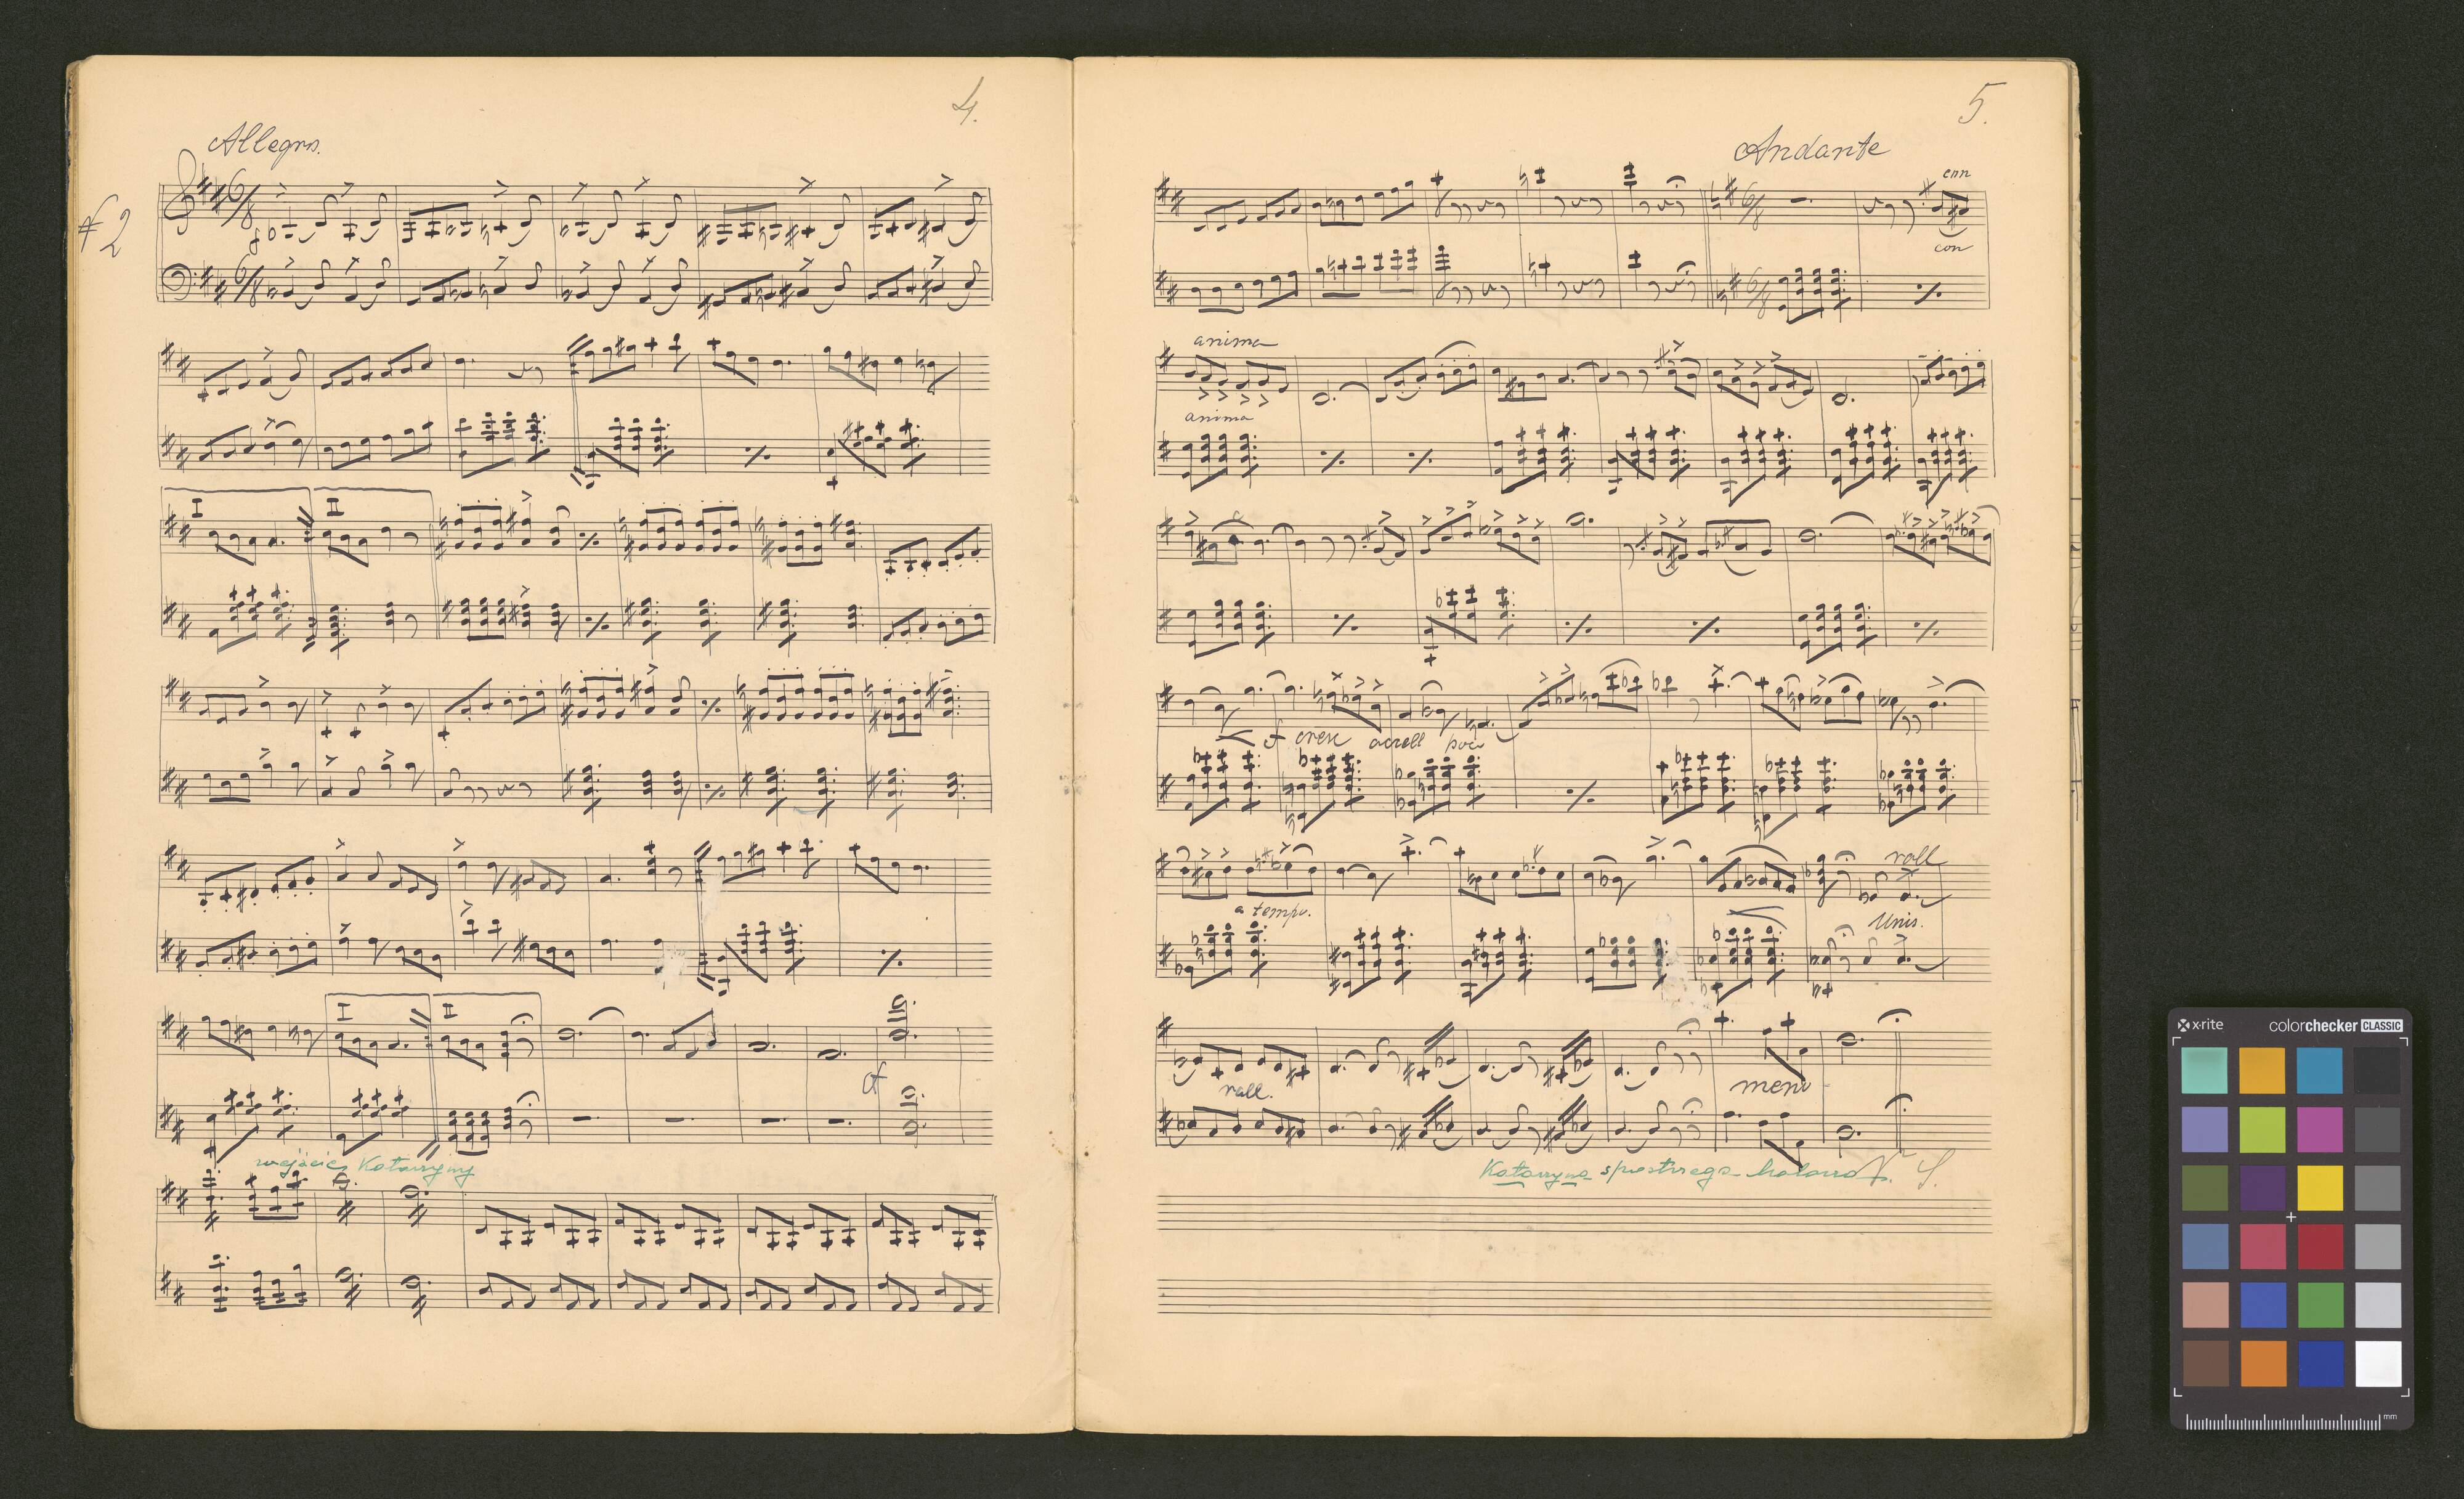 4.
Allegro.
#2
6/8
f
6/8
I
II
I
II
f
wejście Kataryny
5.
Andante
con
6/8
con
6/8
anima
anima
f cresc accell poco
rall
a tempo.
Unis.
rall.
meno
Kataryna spostrzega
x-rite colorchecker CLASSIC
mm